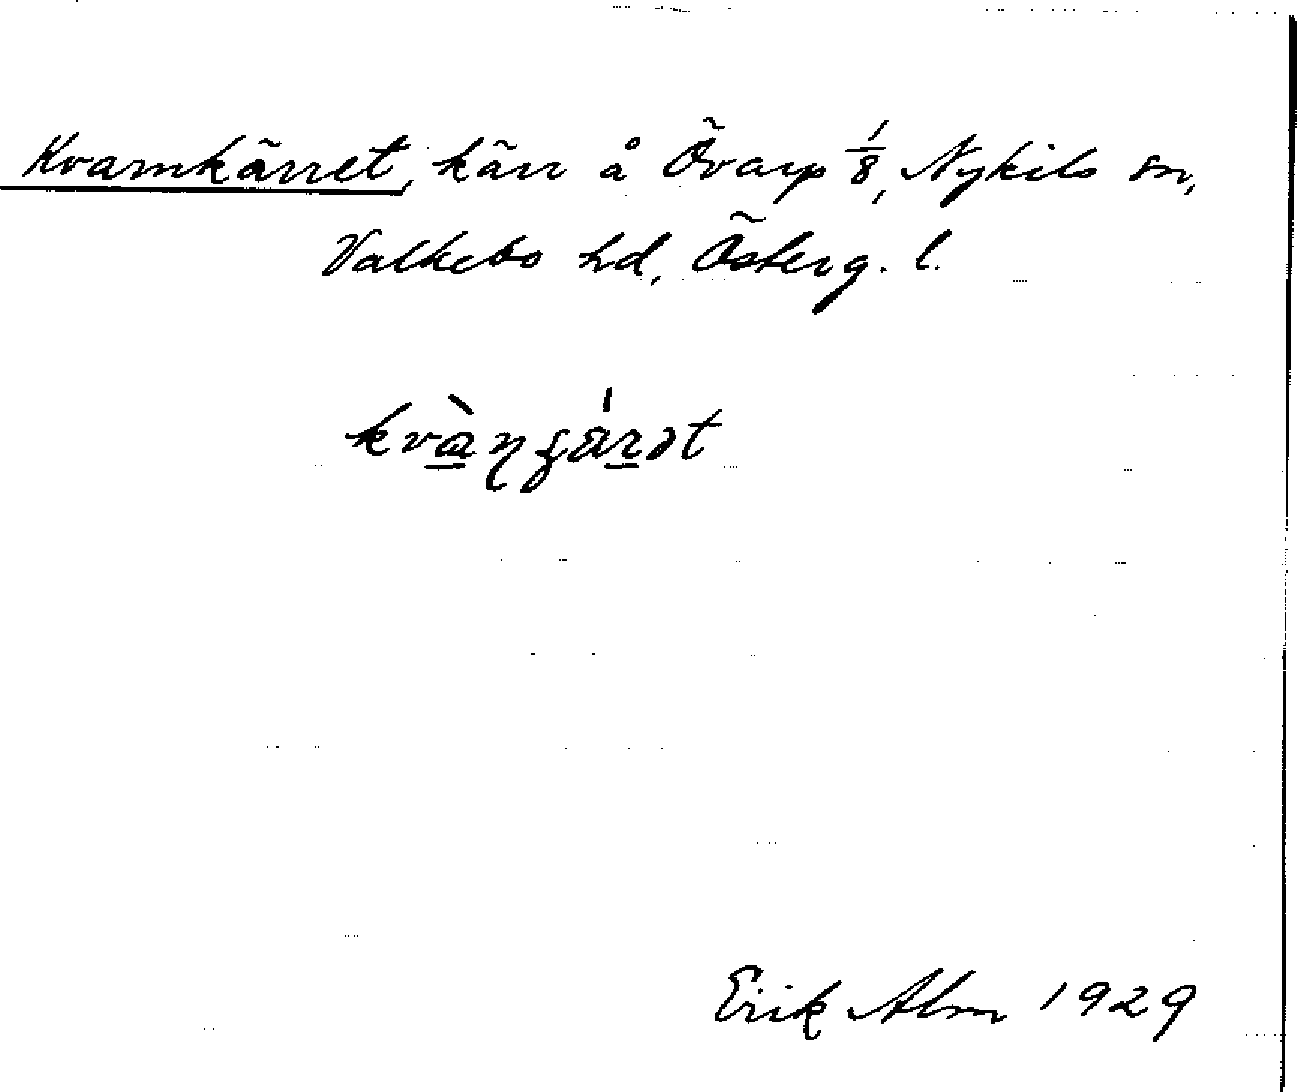 Kvarnkärret, kärr å Övarp 1/8, Nykils sn,
Valkebo hd, Österg. l.
Erik Alm 1929